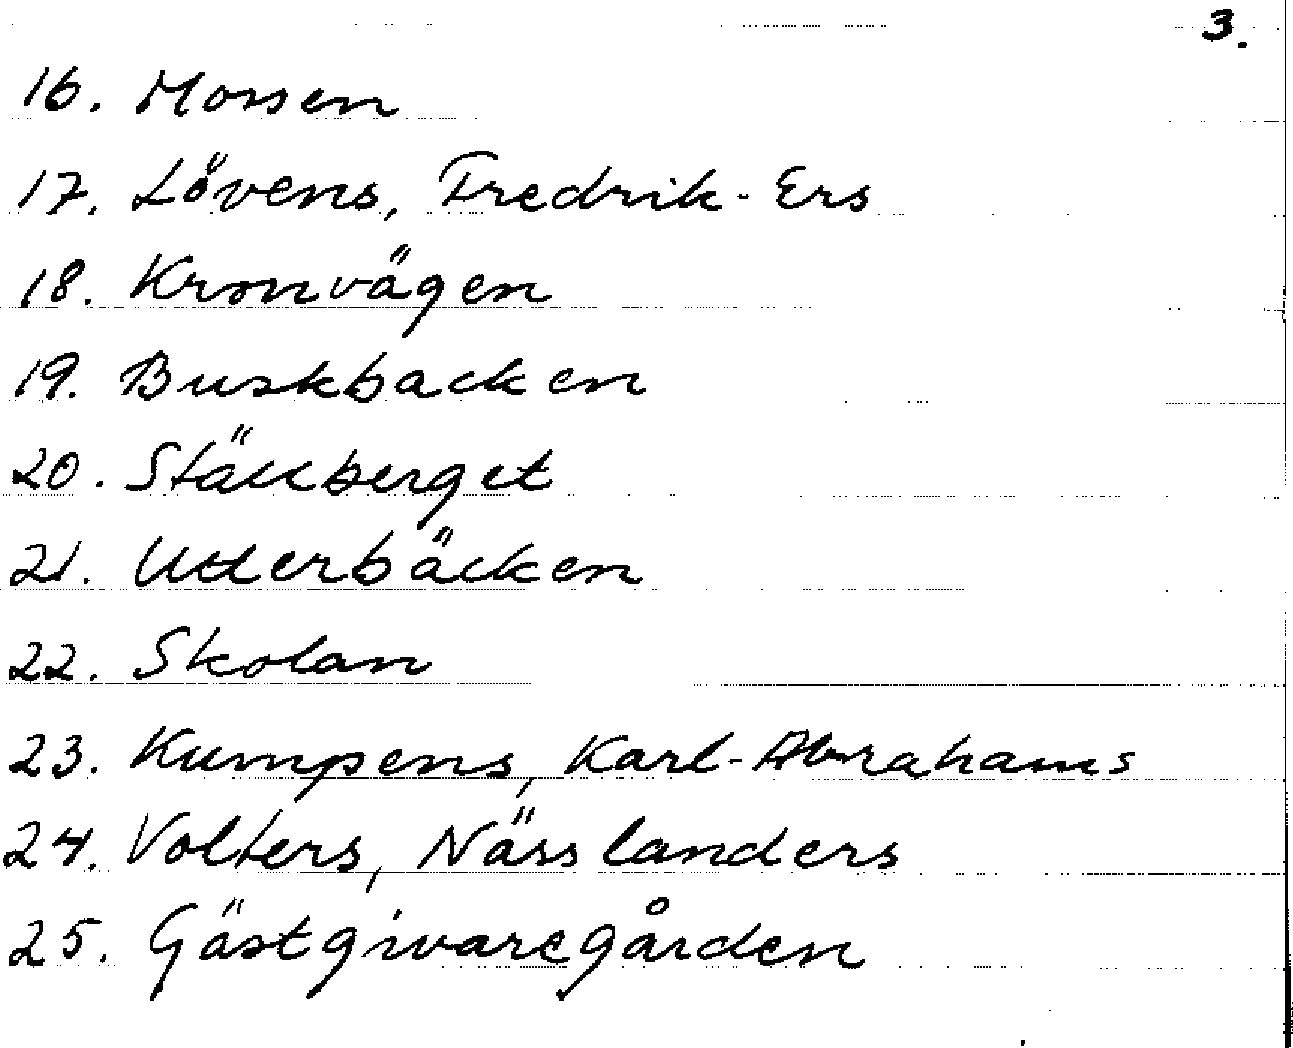 3.
16. Mossen
17. Lövens, Fredrik-Ers
18. Kronvägen
19. Buskbacken
20. Ställberget
21. Utterbäcken
22. Skolan
23. Kumpens, Karl-Abrahams
24. Volters, Nässlanders
25. Gästgivaregården